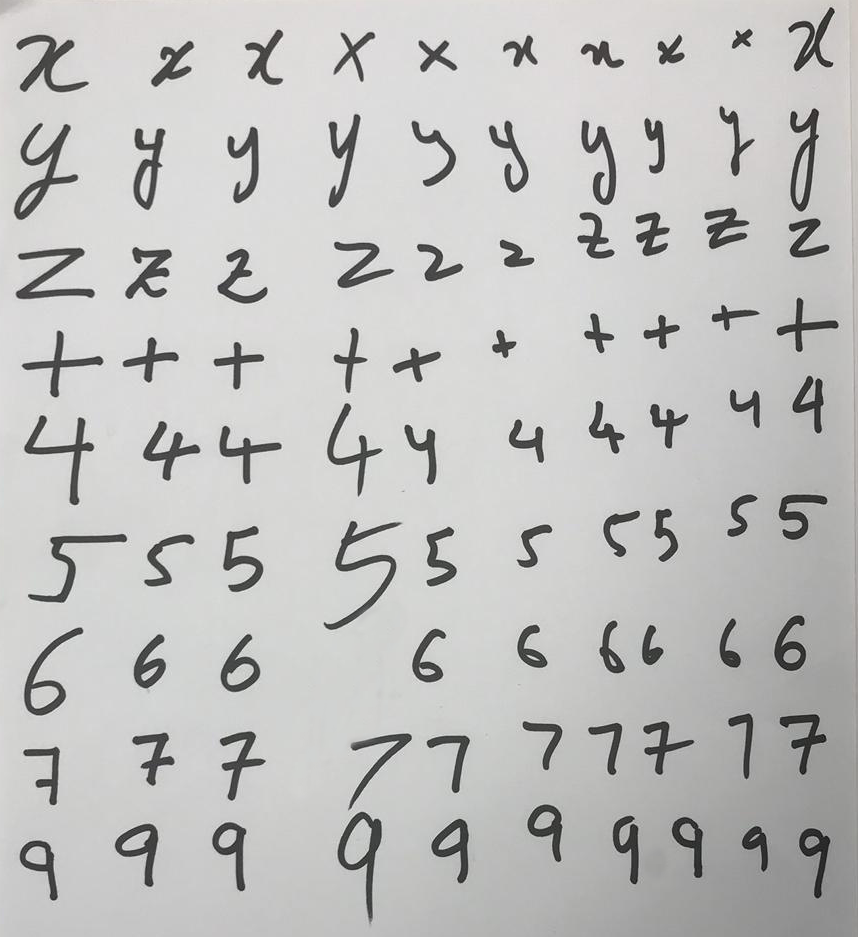 x x x x x x x x x x
y y y y y y y y y y
z z z z z z z z z z
+ + + + + + + + + +
4 4 4 4 4 4 4 4 4 4
5 5 5 5 5 5 5 5 5 5
6 6 6 6 6 6 6 6 6
7 7 7 7 7 7 7 7 7 7
9 9 9 9 9 9 9 9 9 9